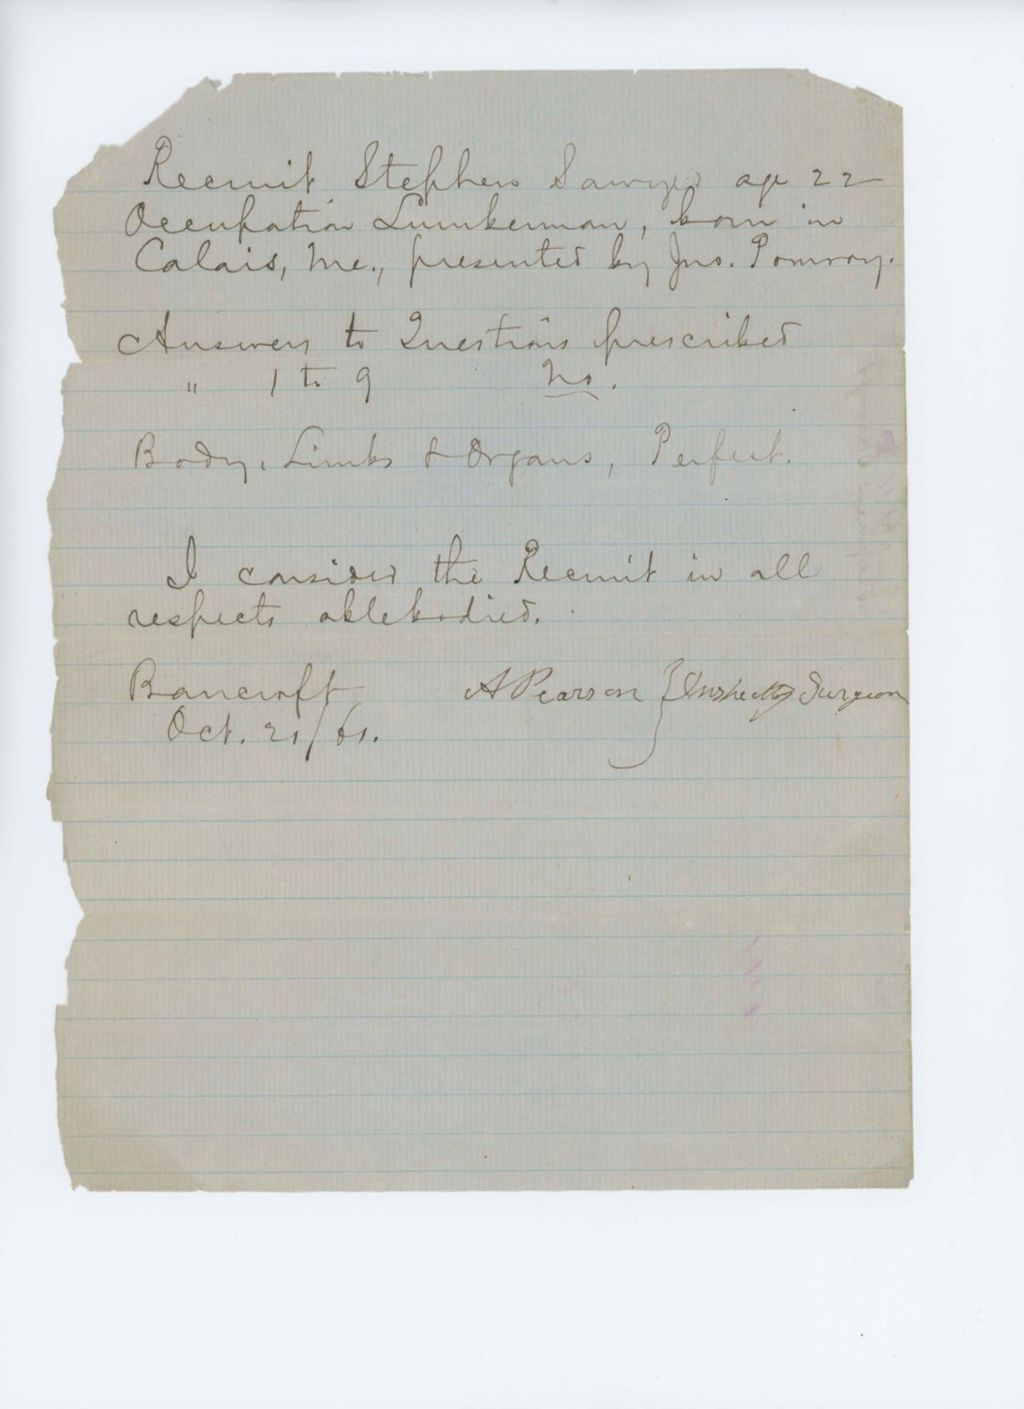 Recruit Stephen Sawyer age 22
Occupation Lumberman, born in
Calais, Me., presented by Jno. Pomroy.
Answers to Questions prescribed
" 1 to 9 No.
Body, Limbs & Organs, Perfect.
I consider the Recruit in all
respects ablebodied.
Bancroft A Pearson } Inspecting Surgeon
Oct. 21/61.